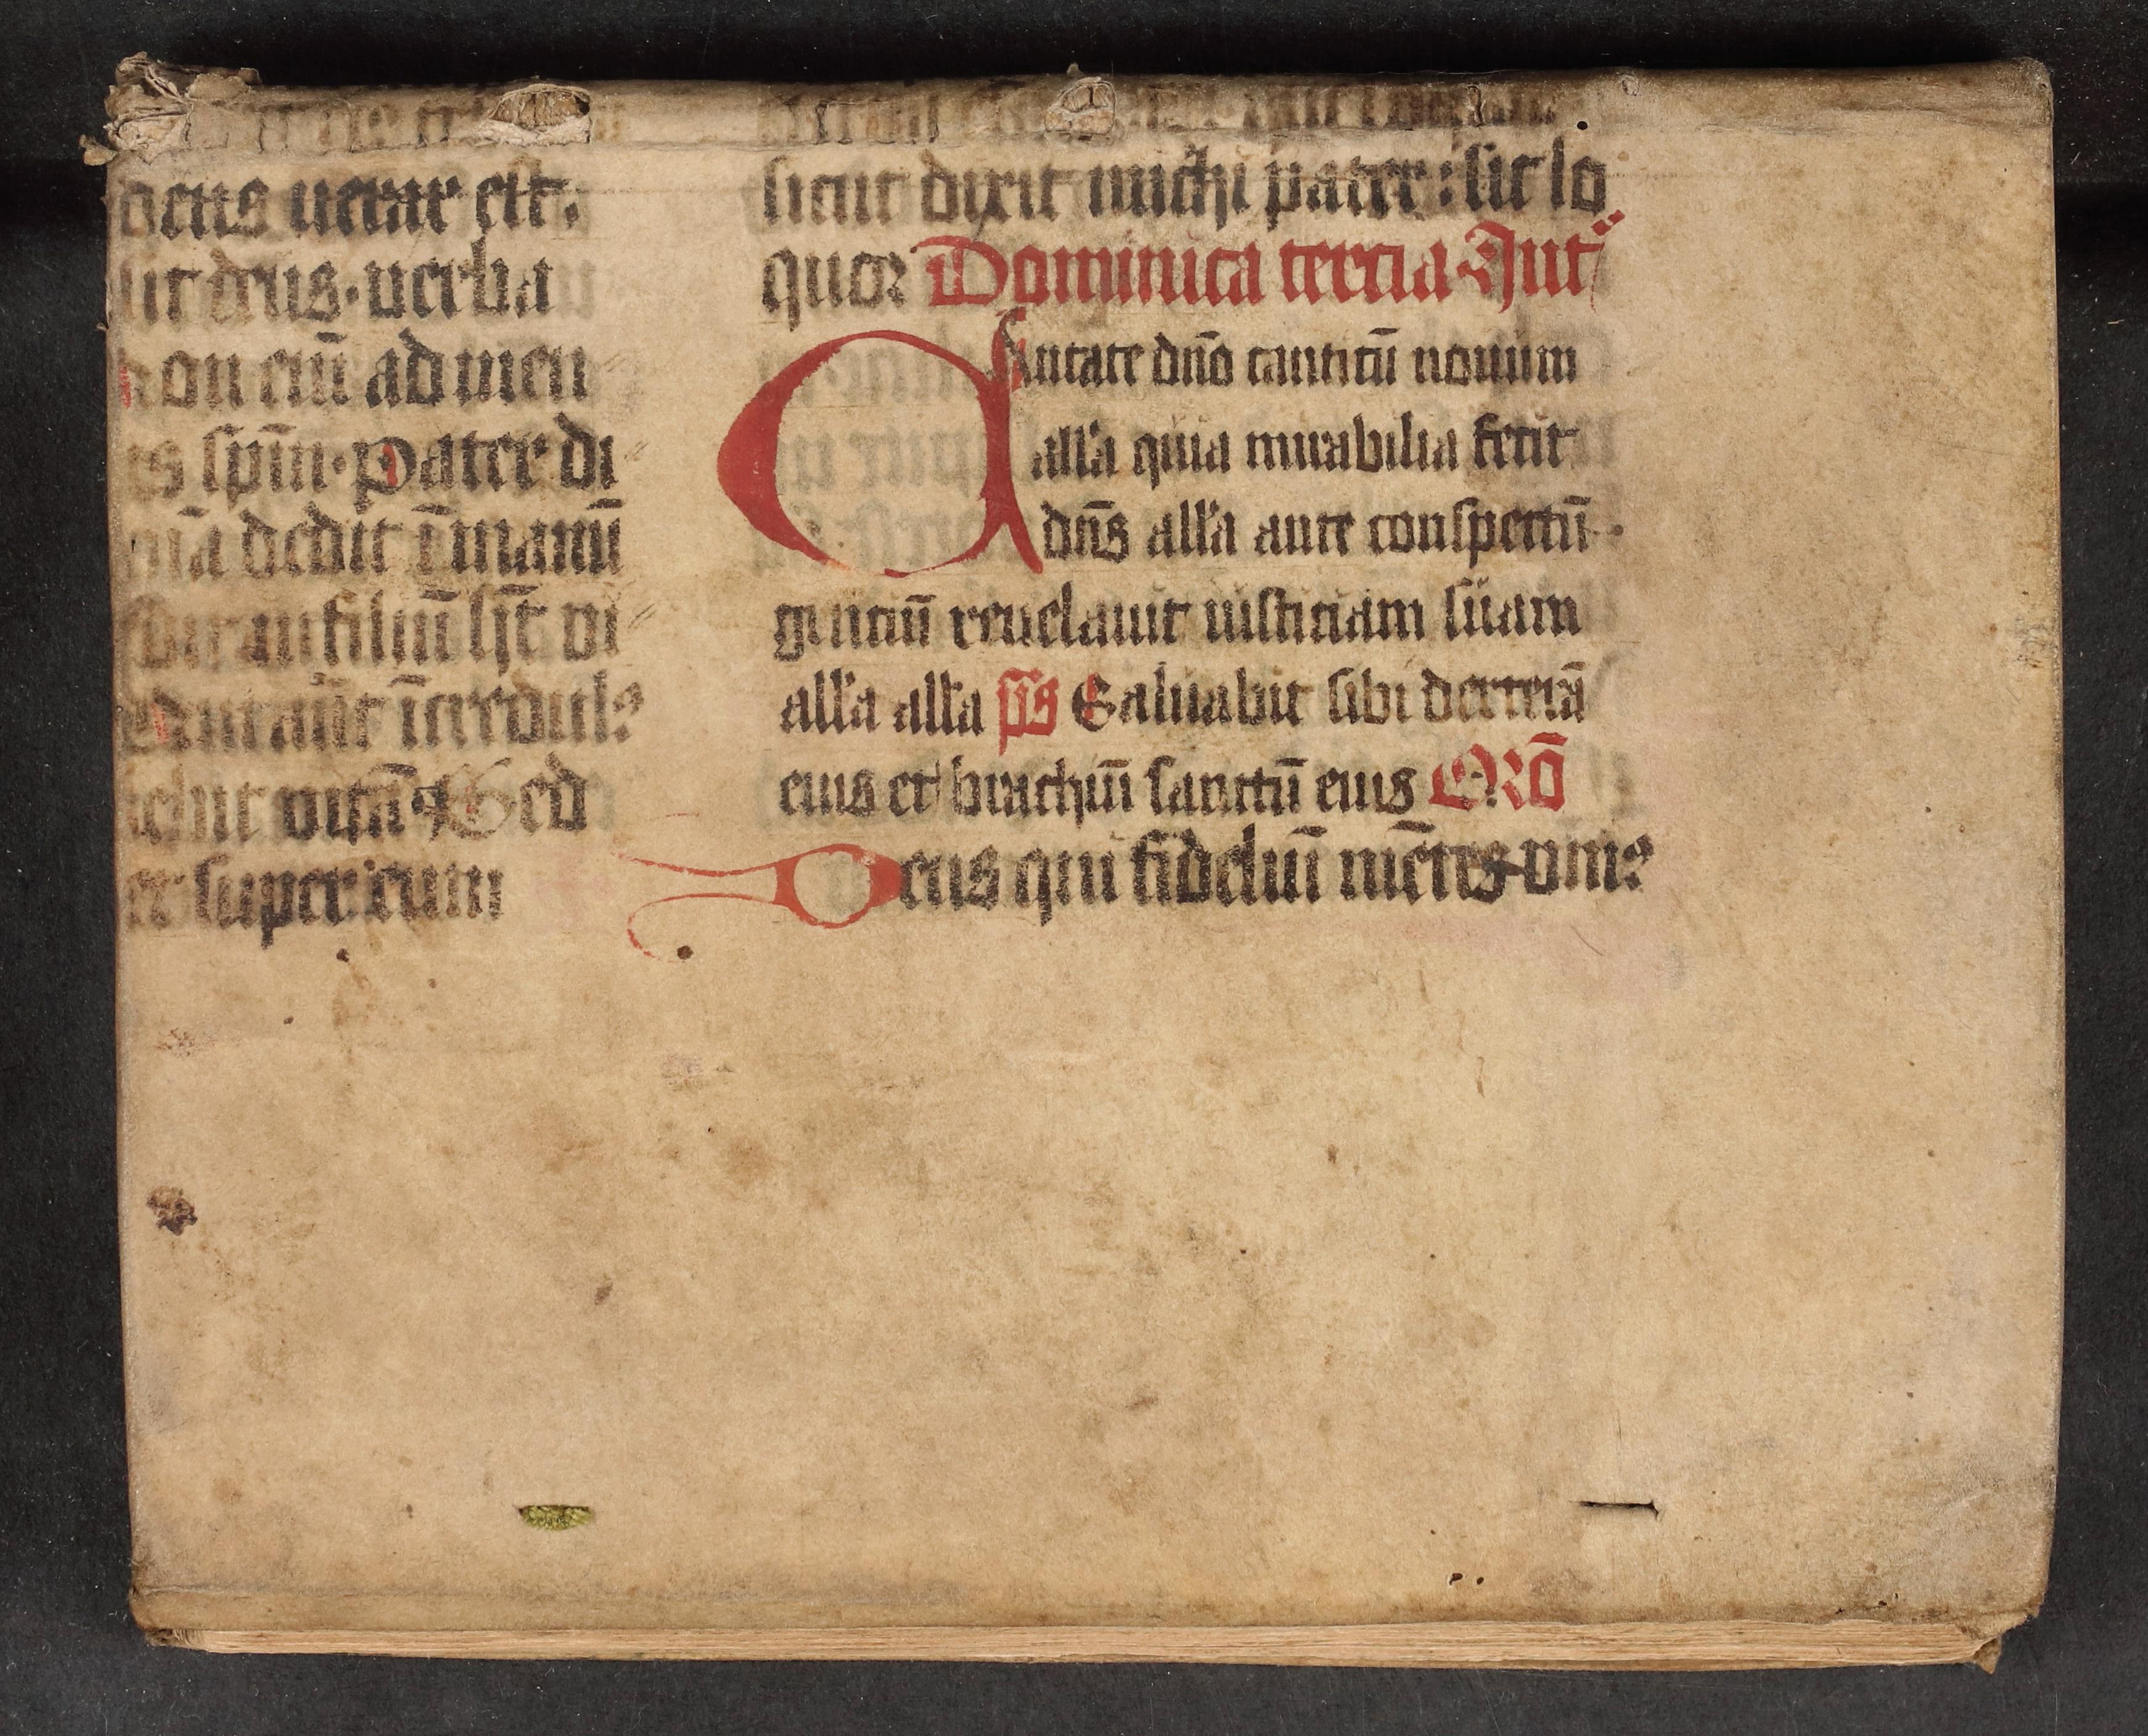 deus uerax est.
sit deus · uerba
non eni̅ ad men
es sp̅m · Pater di
nia̅ dedit i̅ manu̅
dit in filiu̅ h̅t vi
autem i̅credul⁹
uita̅ · Sed
et super eum
sicut dixit michi pater : sic lo
quor Dominica tercia Int̅
Cantate dn̅o canticu̅ nouum
all'a quia mirabilia fecit
dn̅s all'a ante conspectu̅ ·
gentiu̅ reuelauit iusticiam suam
all'a all'a ps̅ Saluabit sibi dextera̅
eius et brachiu̅ sanctu̅ eius ORO̅
Deus qui fideliu̅ me̅tes vni⁹